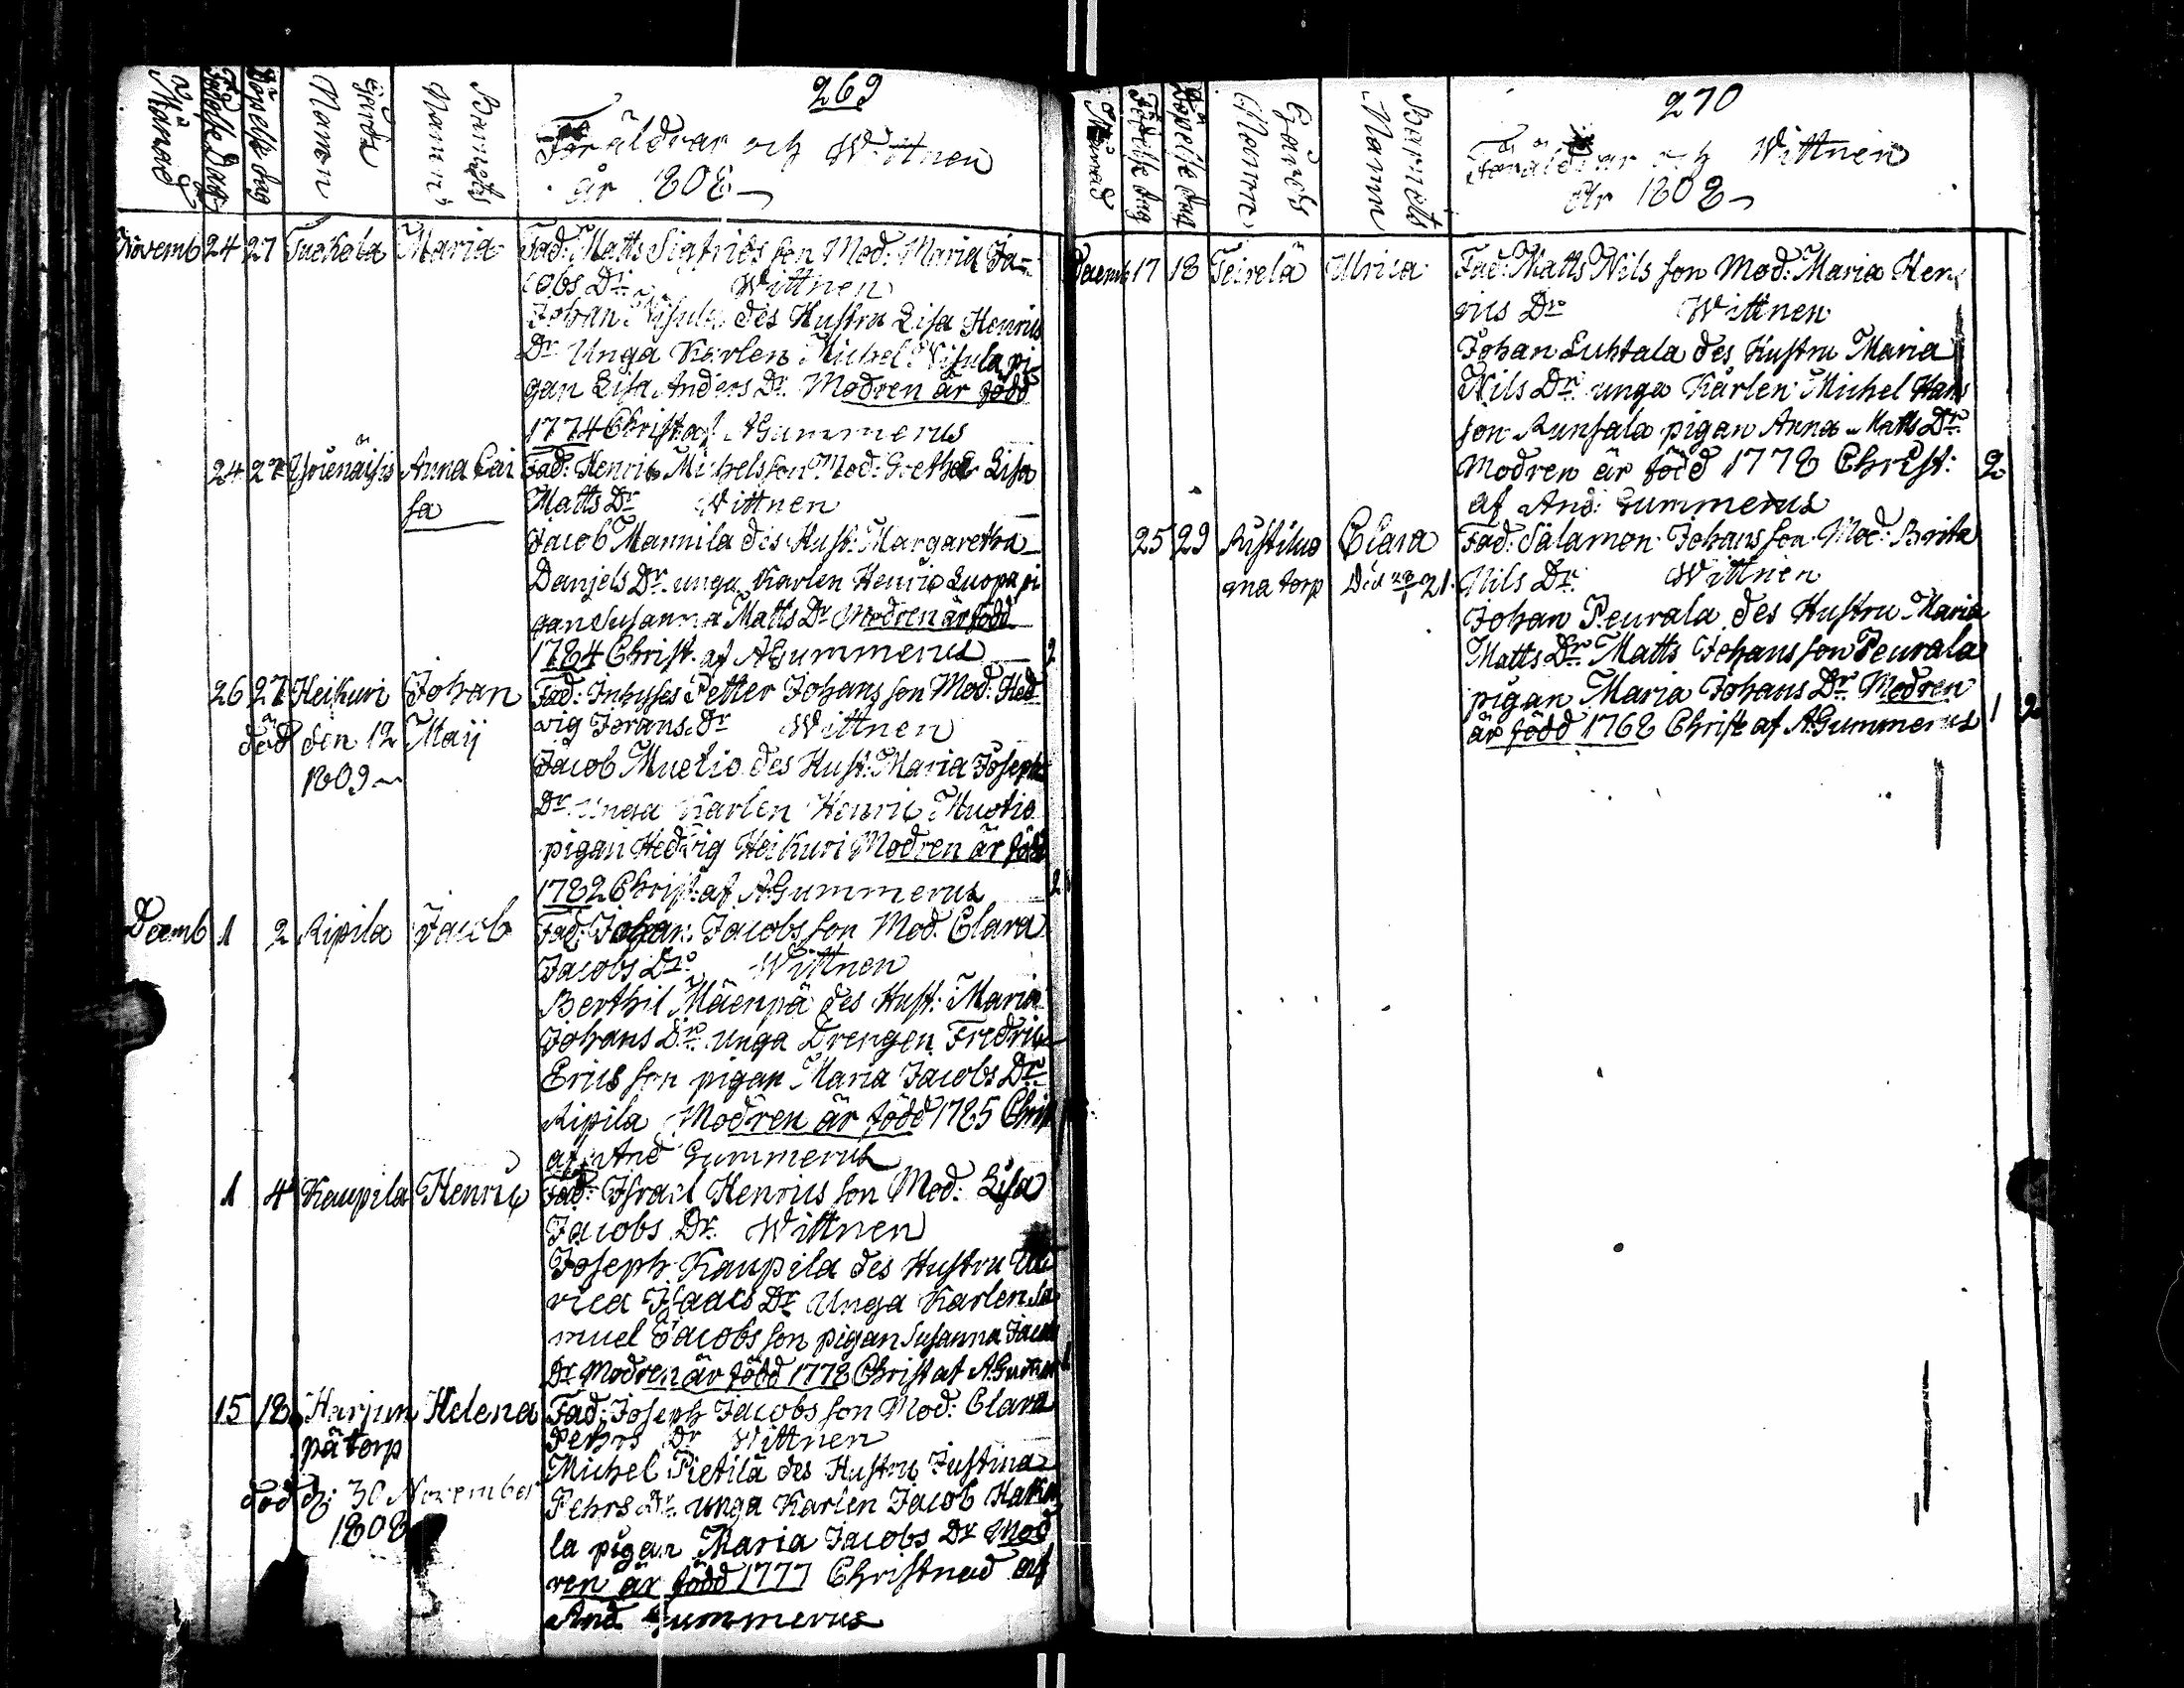 269
Månad
Födelse Dag
Döpelse dag
Gårds Namen
Barnets Namn
Föräldrar och Wittnen
år 1808
Novemb 24 27 Maria Fad: Matts Sigfrids son Mod: Maria Ja-
cobs Dr Wittnen
Johan des Hustru Lisa Henrics
Dr Unga Karlen Michel Nisula pi
gan Lisa Anders Dr Modren är född
1774 Christ af AGummerus
24 27 Anna Cai Fad: Henric Michelsson Mod: Gretha Lisa
sa Matts Dr Wittnen
Jacob Mannila des Hust: Margaretha
Danjels Dr unga Karlen Henric Luopa pi
gan Susanna Matts Dr Modren är född
1784 Christ. af AGummerus 2
26 27 Heikuri Johan Fad: Inhyses Petter Johans son Mod: Hed
död den 12 Maij vig Jörans Dr Wittnen
1809 Jacob Muotio des Hust: Maria Josephs
Dr Unga Karlen Henric Muotio
pigan Hedvig Heikuri Modren är född
1782 Christ. af AGummerus 2
Decemb 1 2 Ripila Jacob Fad: Johan Jacobs son Mod: Clara
Jacobs Dr Wittnen
Berthil Mäenpä des Hust: Maria
Johans Dr unga Drengen Fredric
Erics son pigan Maria Jacobs Dr
Ripila Modren är född 1785 Christ
af And Gummerus
1 4 Kaupila Henric Fad: Israel Henrics son Mod: Lisa
Jacobs Dr Wittnen
Joseph Kaupila des Hustru Ul
rica Isaacs Dr Unga Karlen Sa
muel Jacobs son pigan Susanna Jacobs
Dr Modren är född 1778 Christ af AGummer
15 18 Harjun Helena Fad: Joseph Jacobs son Mod: Clara
pä torp Pehrs Dr Wittnen
Michel Pietilä des Hustru Justina
död d: 30 November Pehrs Dr unga Karlen Jacob Haku
1808 la pigan Maria Jacobs Dr Mod
ren är född 1777 Christnad af
And Gummerus
270
Månad
Födelse dag
Döpelse dag
Gårds Namn
Barnets Namn
Föräldrar och Wittnen
År 1808
Decemb 17 18 Teirelä Ulrica Fad: Matts Nils son Mod: Maria Hen
rics Dr Wittnen
Johan Luhtala des Hustru Maria
Nils Dr unga Karlen Michel Hans
son Runsala pigan Anna Matts Dr
Modren är född 1778 Christ: 2
af And: Gummerus
25 29 Clara Fad: Salamon Johans son Mod: Brita
torp Nils Dr Wittnen
Johan Peurala des Hustru Maria
Matts Dr Matts Johans son Peurala
pigan Maria Johans Dr Modren
är född 1768 Christ af AGummerus 1 2